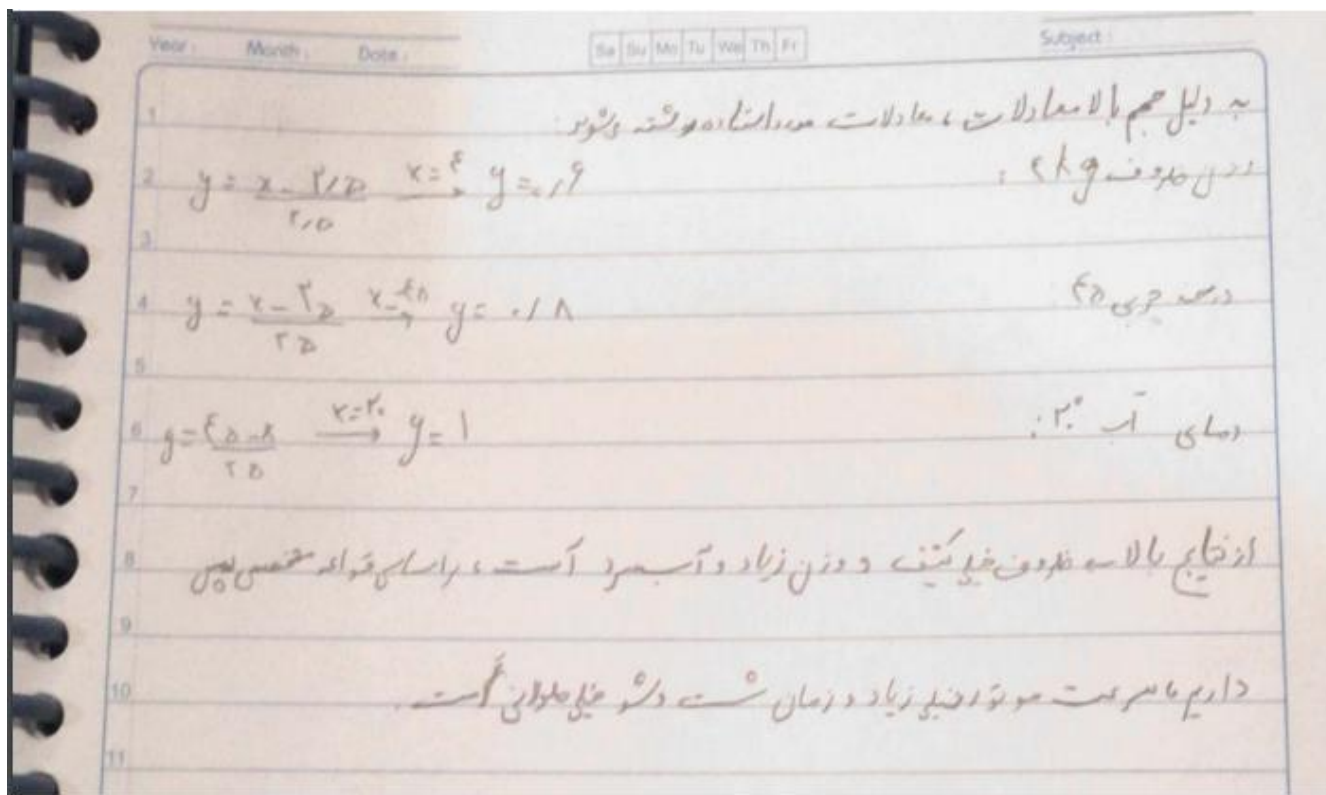 Year: Month: Date: Sa Su Mo Tu We Th Fr Subject:
1 به دلیل حجم بالا معادلات ، معادلات مورد استفاده نوشته میشود.
2 وزن ظروف ۴kg :
y = x - ۲/۵ / ۲/۵ x=۴ → y = ۰/۶
3
4 درصد چربی ۴۵
y = x - ۲۵ / ۲۵ x=۴۵ → y = ۰/۸
5
6 دمای آب ۲۰° :
y = ۴۵-x / ۲۵ x=۲۰ → y = ۱
7
8 از نتایج بالا ظروف خیلی کثیف و وزن زیاد و آب سرد است ، براساس قواعد مشخص پس
9
10 داریم سرعت موتور خیلی زیاد و زمان شست و شو خیلی طولانی است.
11